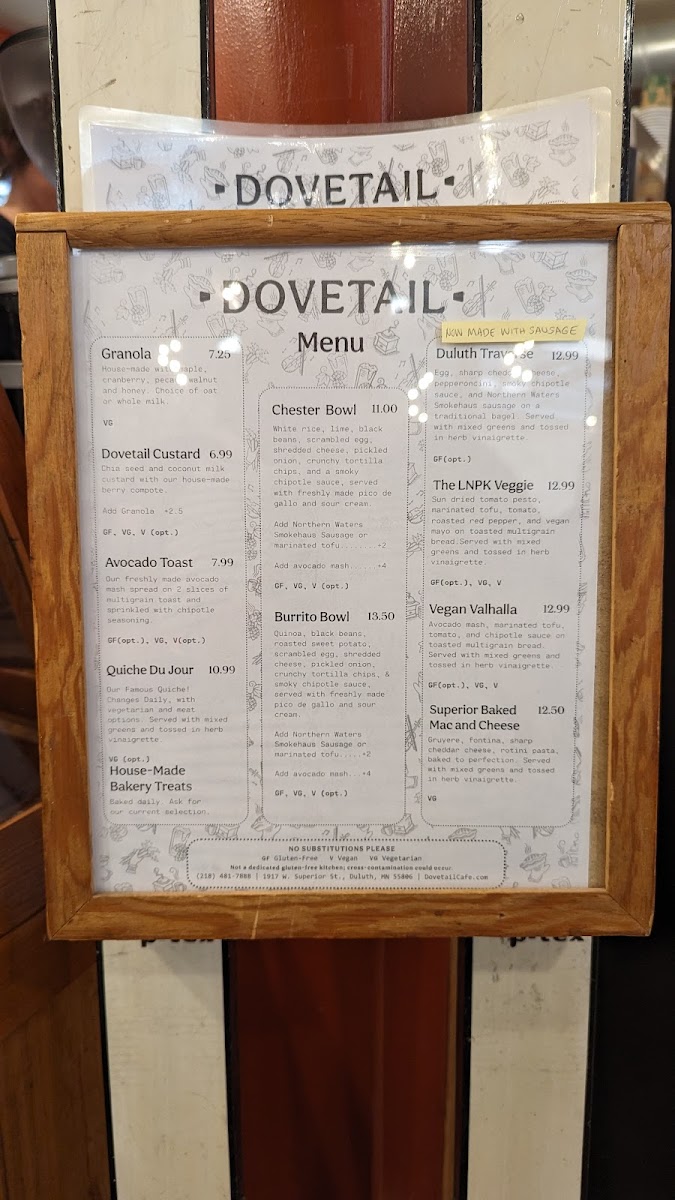 DOVETAIL
DOVETAIL
Menu
Granola 7.25
House-made with maple,
cranberry, pecan, walnut
and honey. Choice of oat
or whole milk.
VG
Dovetail Custard 6.99
Chia seed and coconut milk
custard with our house-made
berry compote.
Add Granola +2.5
GF, VG, V (opt.)
Avocado Toast 7.99
Our freshly made avocado
mash spread on 2 slices of
multigrain toast and
sprinkled with chipotle
seasoning.
GF(opt.), VG, V(opt.)
Quiche Du Jour 10.99
Our Famous Quiche!
Changes Daily, with
vegetarian and meat
options. Served with mixed
greens and tossed in herb
vinaigrette.
VG (opt.)
House-Made
Bakery Treats
Baked daily. Ask for
our current selection.
Chester Bowl 11.00
White rice, lime, black
beans, scrambled egg,
shredded cheese, pickled
onion, crunchy tortilla
chips, and a smoky
chipotle sauce, served
with freshly made pico de
gallo and sour cream.
Add Northern Waters
Smokehaus Sausage or
marinated tofu.......+2
Add avocado mash.....+4
GF, VG, V (opt.)
Burrito Bowl 13.50
Quinoa, black beans,
roasted sweet potato,
scrambled egg, shredded
cheese, pickled onion,
crunchy tortilla chips, &
smoky chipotle sauce,
served with freshly made
pico de gallo and sour
cream.
Add Northern Waters
Smokehaus Sausage or
marinated tofu.....+2
Add avocado mash...+4
GF, VG, V (opt.)
NOW MADE WITH SAUSAGE
Duluth Traverse 12.99
Egg, sharp cheddar cheese,
pepperoncini, smoky chipotle
sauce, and Northern Waters
Smokehaus sausage on a
traditional bagel. Served
with mixed greens and tossed
in herb vinaigrette.
GF(opt.)
The LNPK Veggie 12.99
Sun dried tomato pesto,
marinated tofu, tomato,
roasted red pepper, and vegan
mayo on toasted multigrain
bread.Served with mixed
greens and tossed in herb
vinaigrette
GF(opt.), VG, V
Vegan Valhalla 12.99
Avocado mash, marinated tofu,
tomato, and chipotle sauce on
toasted multigrain bread.
Served with mixed greens and
tossed in herb vinaigrette.
GF(opt.), VG, V
Superior Baked 12.50
Mac and Cheese
Gruyere, fontina, sharp
cheddar cheese, rotini pasta,
baked to perfection. Served
with mixed greens and tossed
in herb vinaigrette.
VG
NO SUBSTITUTIONS PLEASE
GF Gluten-Free V Vegan VG Vegetarian
Not a dedicated gluten-free kitchen; cross-contamination could occur.
(218) 481-7888 | 1917 W. Superior St., Duluth, MN 55806 | DovetailCafe.com
p-tex p-tex